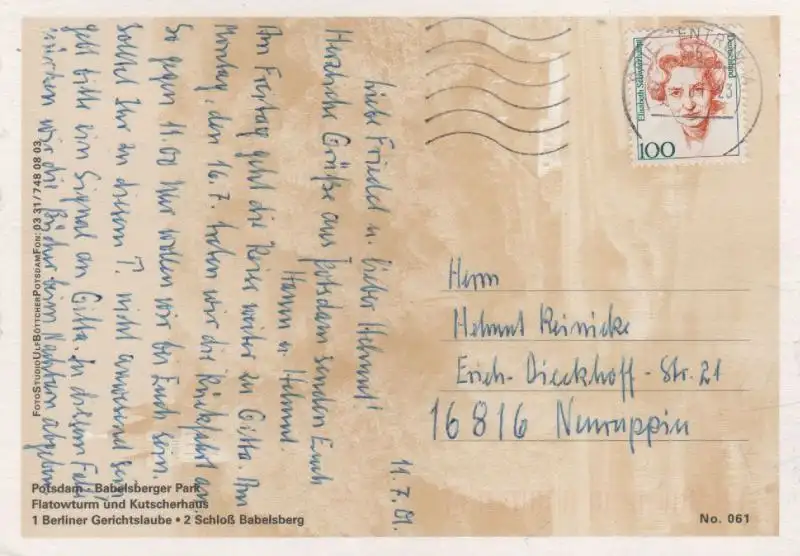 11.7.01.
Liebe Friedel u. lieber Helmut!
Herzliche Grüße aus Potsdam senden Euch
Hanna u. Helmut.
Am Freitag geht die Reise weiter zu Gitta. Am
Montag, den 16.7. haben wir die Rückfahrt an.
So gegen 11.00 Uhr wollen wir bei Euch sein.
Solltet Ihr zu diesem T. nicht anwesend sein,
gebt bitte ein Signal an Gitta. In diesem Falle
würden wir die Bücher beim Nachbarn abgeben.
FOTOSTUDIO ULF BÖTTCHER POTSDAM FON: 03 31/7 48 08 03
Elisabeth Schwarzhaupt
Deutschland
100
Herrn
Helmut Reinicke
Erich-Dieckhoff-Str. 21
16816 Neuruppin
Potsdam · Babelsberger Park
Flatowturm und Kutscherhaus
1 Berliner Gerichtslaube • 2 Schloß Babelsberg
No. 061